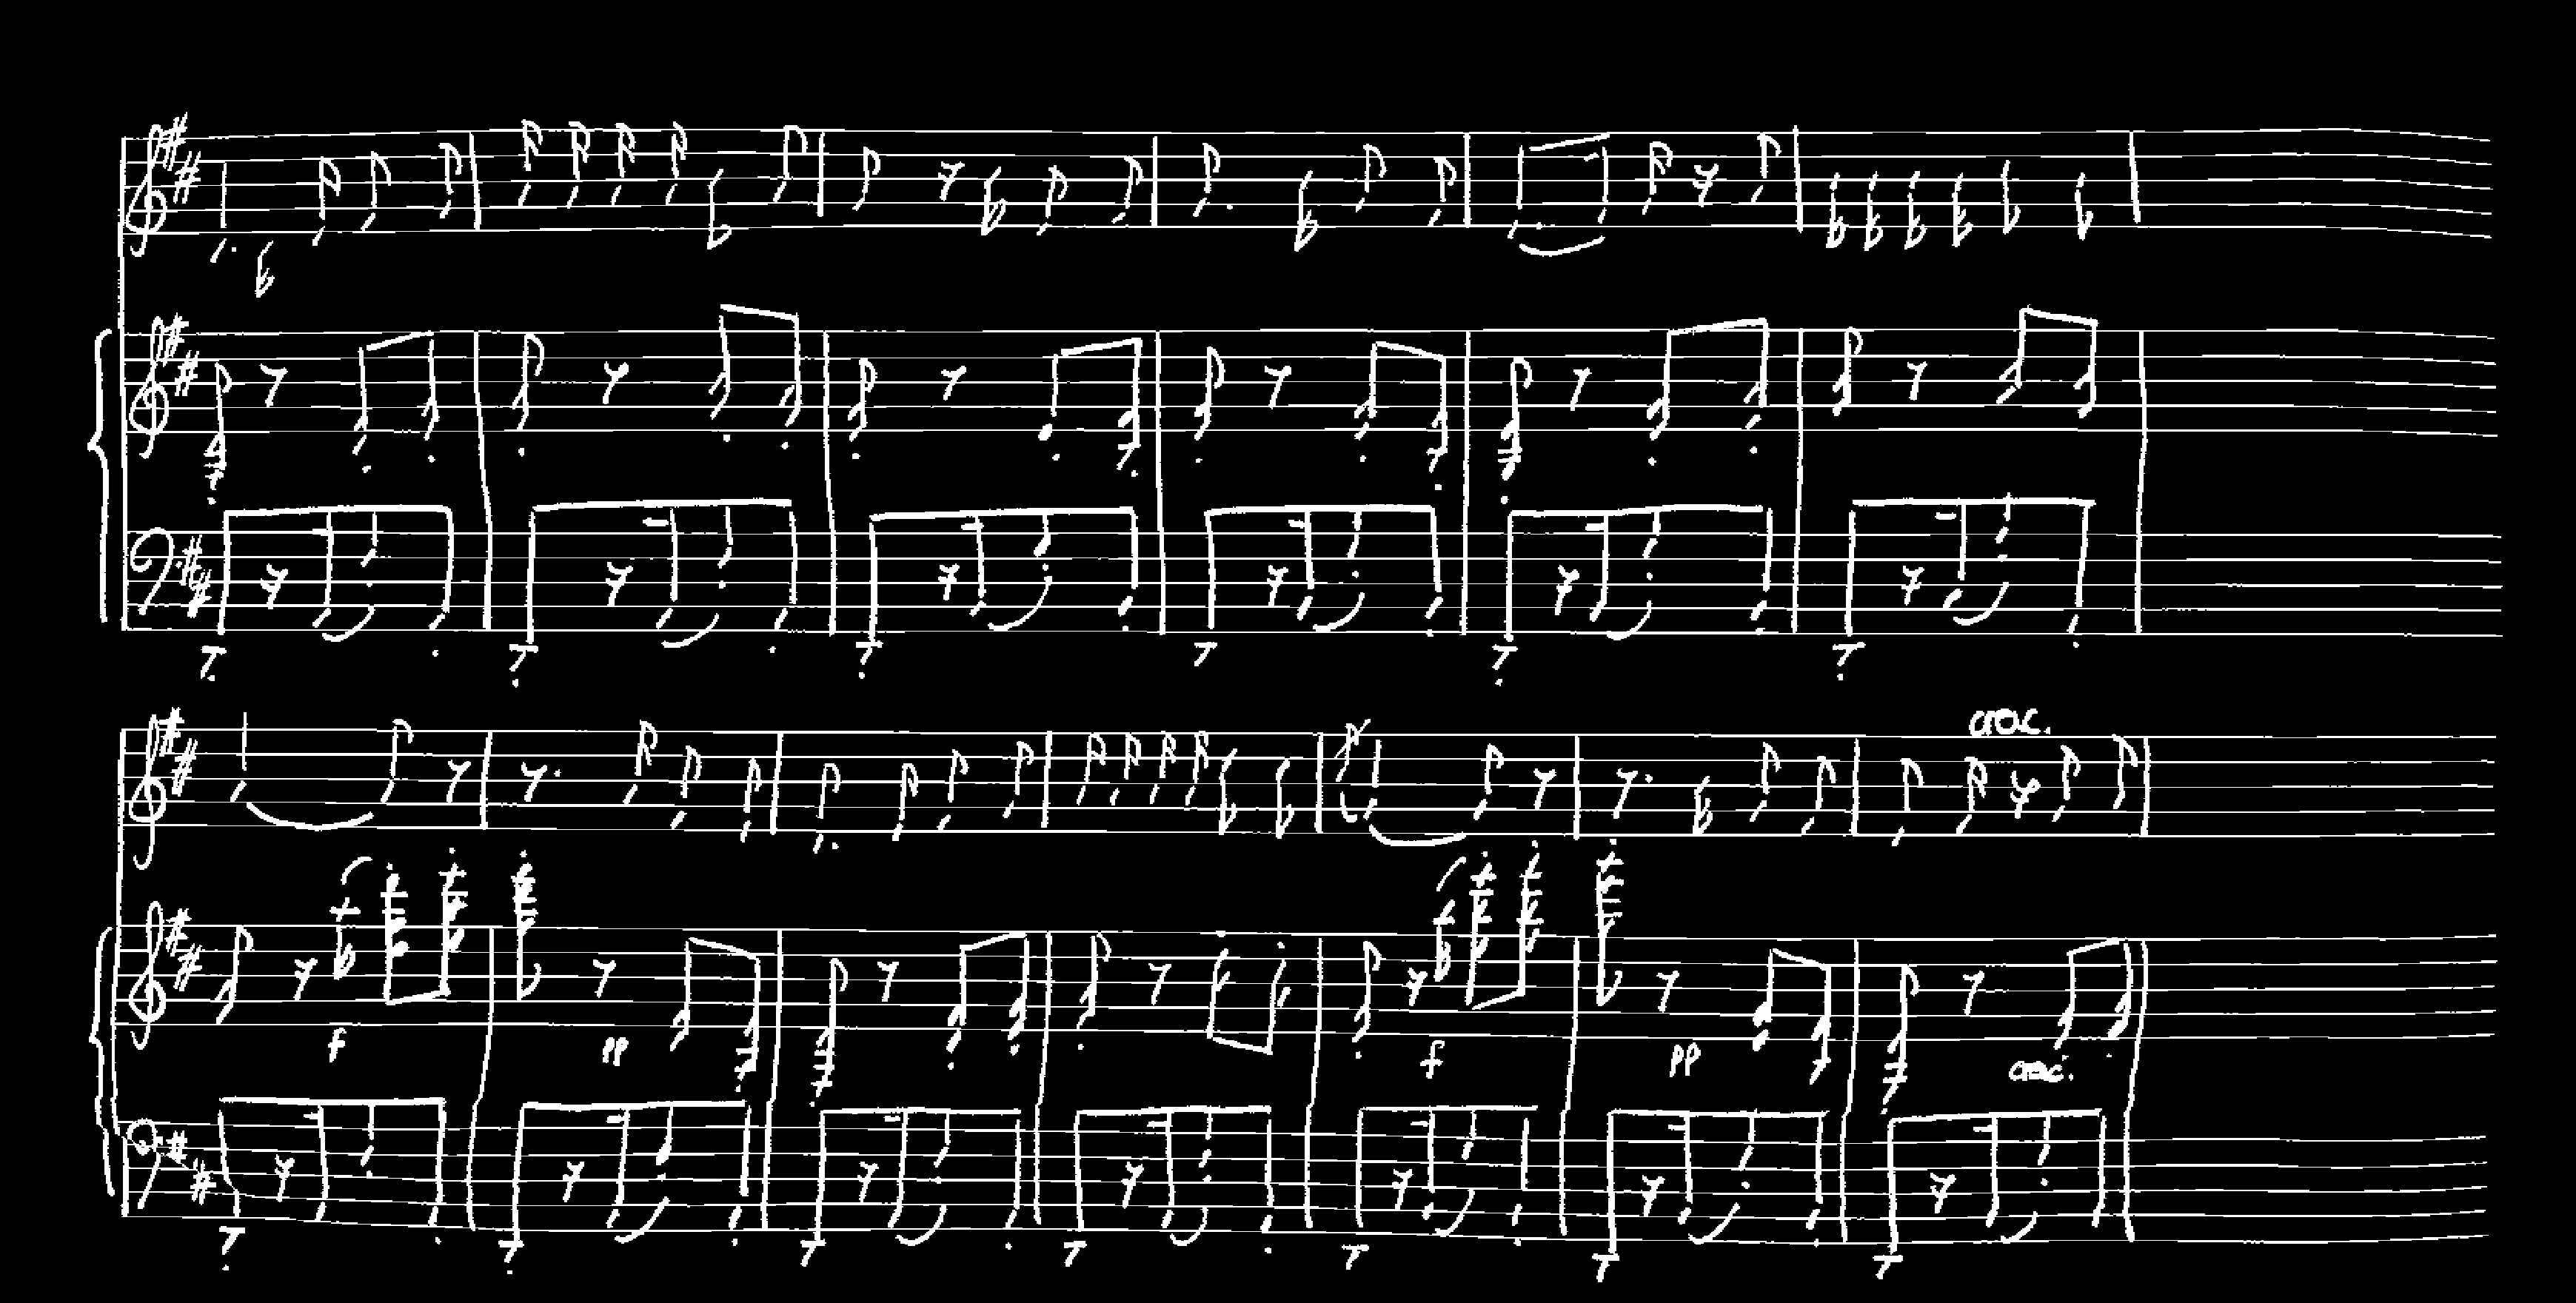 cresc.
f pp f pp cresc.